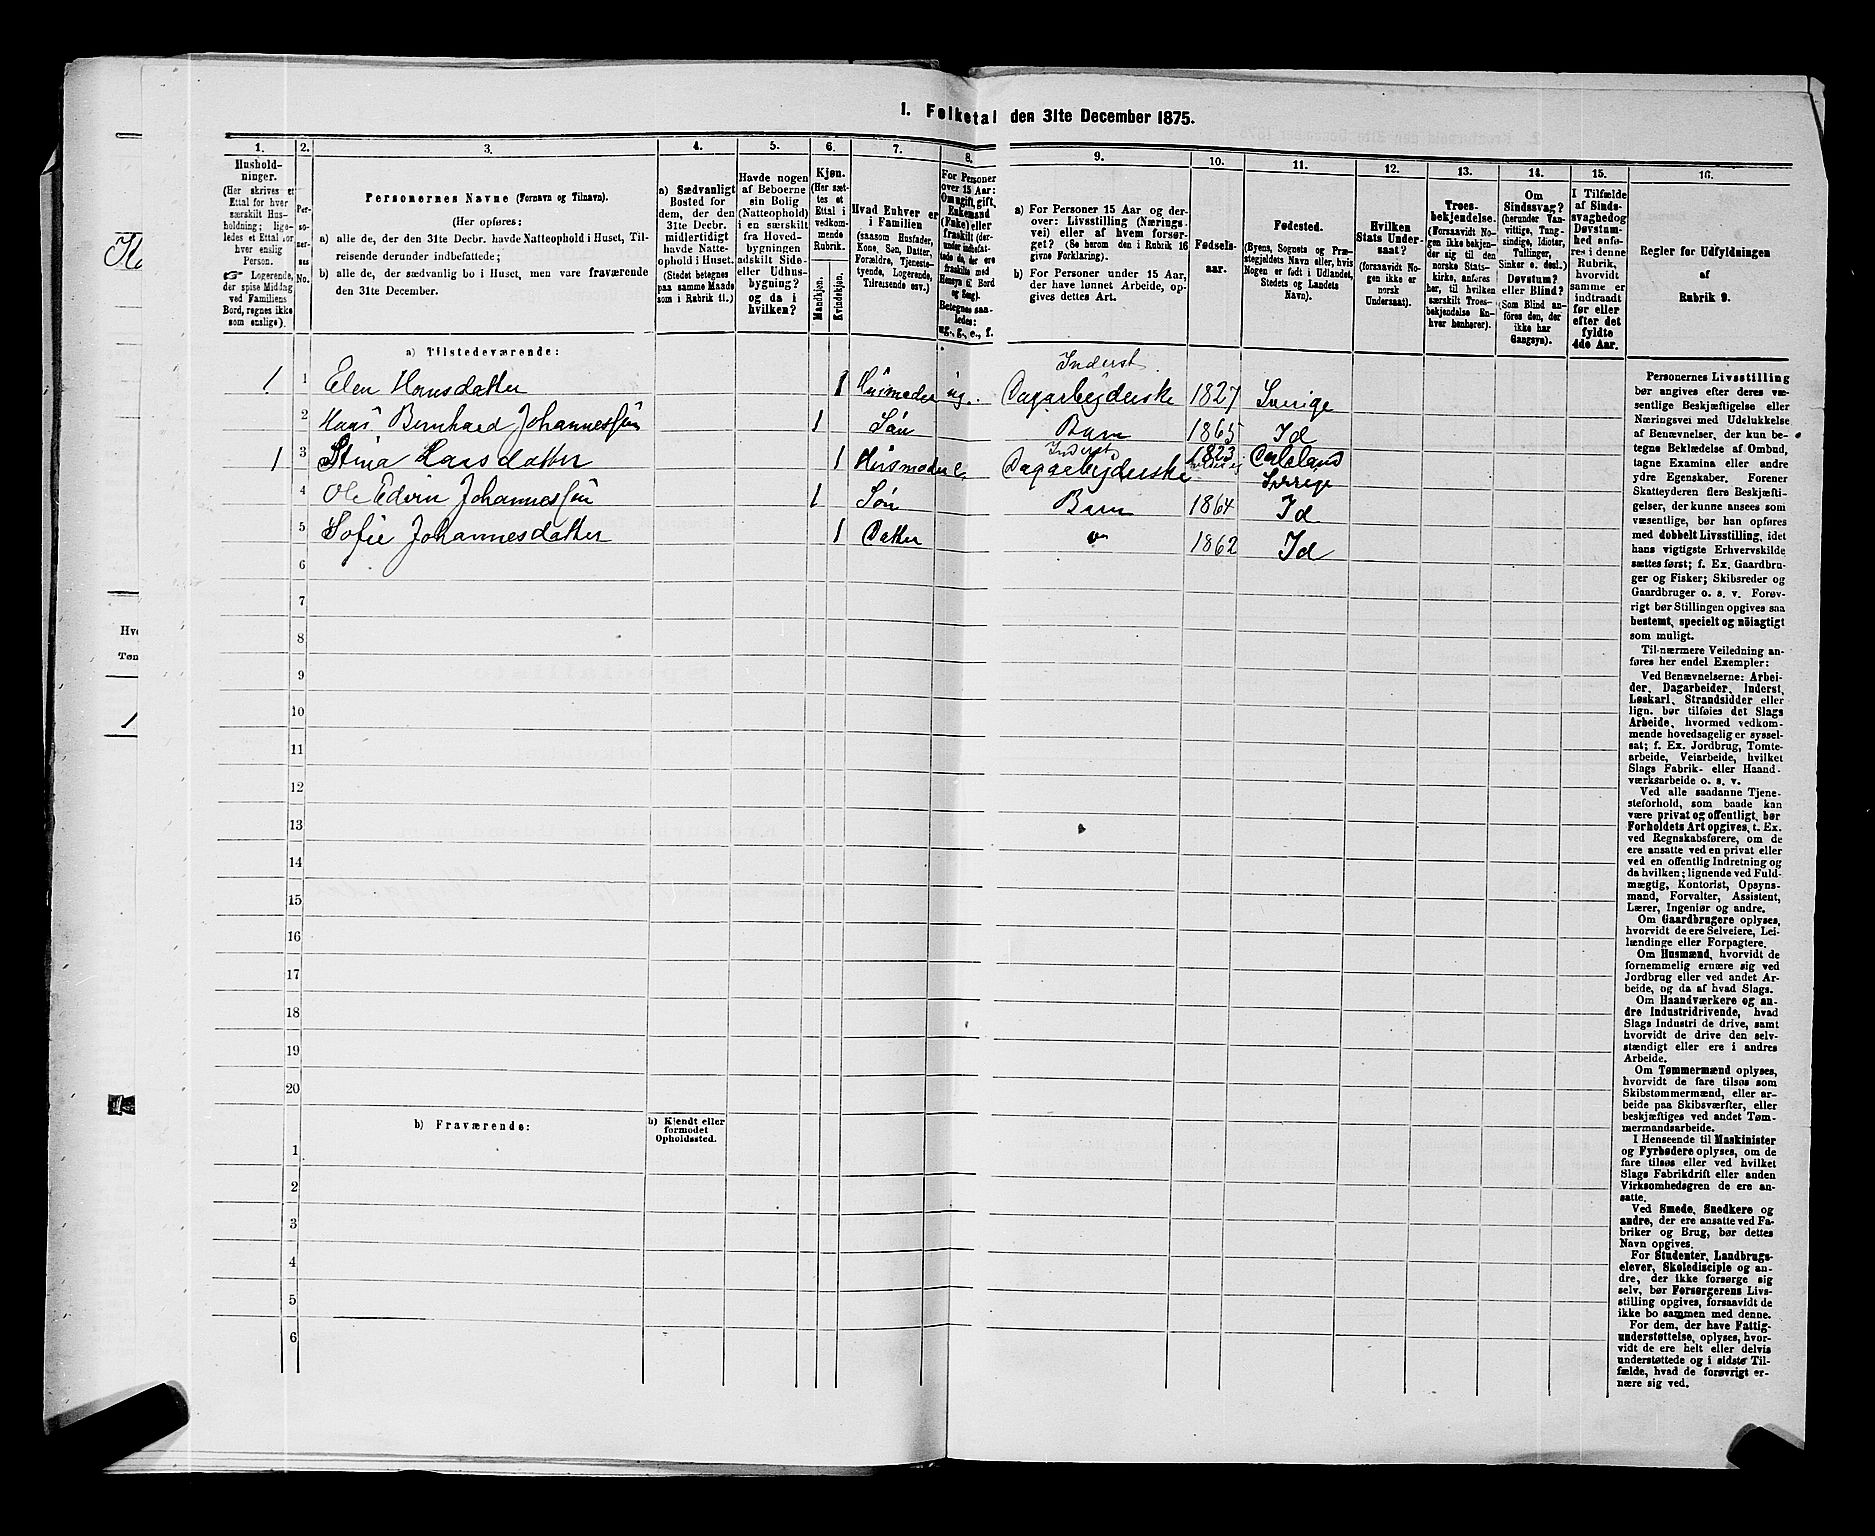 1. Folketal den 31te December 1875.
1.
Hushold-
ninger.
(Her skrives et
Ettal for hver
særskilt Hus-
holdning; lige-
ledes et Ettal for
hver enslig
Person.
☞ Logerende,
der spise Middag
ved Familiens
Bord, regnes ikke
som enslige).
2.
Per-
so-
ner-
nes
No.
3.
Personernes Navne (Fornavn og Tilnavn).
(Her opføres:
a) alle de, der den 31te Decbr. havde Natteophold i Huset, Til-
reisende derunder indbefattede;
b) alle de, der sædvanlig bo i Huset, men vare fraværende
den 31te December.
4.
a) Sædvanligt
Bosted for
dem, der den
31te Decbr.
midlertidigt
havde Natte-
ophold i Huset.
(Stedet betegnes
paa samme Maade
som i Rubrik 11.)
5.
Havde nogen
af Beboerne
sin Bolig
(Natteophold)
i en særskilt
fra Hoved-
bygningen
adskilt Side-
eller Udhus-
bygning?
og da i
hvilken?
6.
Kjøn.
(Her sæt-
tes et
Ettal i
vedkom-
mende
Rubrik.
Mandkjøn.
Kvindekjøn.
7.
Hvad Enhver er
i Familien
(saasom Husfader,
Kone, Søn, Datter,
Forældre, Tjeneste-
tyende, Logerende,
Tilreisende osv.)
8.
For Personer
over 15 Aar:
Om ugift, gift,
Enkemand
(Enke) eller
fraskilt (der-
under indbefat-
tede de, der ere
fraskilte med
Hensyn til Bord
og Seng).
Betegnes saa-
ledes:
ug., g., e., f.
9.
a) For Personer 15 Aar og der-
over: Livsstilling (Nærings-
vei) eller af hvem forsør-
get? (Se herom den i Rubrik 16
givne Forklaring).
b) For Personer under 15 Aar,
der have lønnet Arbeide, op-
gives dettes Art.
10.
Fødsels-
aar.
11.
Fødested.
(Byens, Sognets og Præ-
stegjeldets Navn eller, hvis
Nogen er født i Udlandet,
Stedets og Landets
Navn).
12.
Hvilken
Stats Under-
saat?
(forsaavidt No-
gen ikke er
norsk
Undersaat).
13.
Troes-
bekjendelse.
(Forsaavidt No-
gen ikke bekjen-
der sig til den
norske Stats-
kirke, anføres
her, til hvilken
særskilt Troes-
bekjendelse En-
hver henhører).
14.
Om
Sindssvag?
(herunder Van-
vittige, Tung-
sindige, Idioter,
Tullinger,
Sinker o. desl.)
Døvstum?
eller Blind?
(Som Blind an-
føres den, der
ikke har
Gangsyn).
15.
I Tilfælde
af Sinds-
svaghed og
Døvstum-
hed anfø-
res i denne
Rubrik,
hvorvidt
samme er
indtraadt
før eller
efter det
fyldte
4de Aar.
16.
Regler for Udfyldningen
af
Rubrik 9.
a) Tilstedeværende:
1 1 Elen Hansdatter 1 Husmoder ug. Inderst. Dagarbejderske 1827 Sverige
2 Hans Bernhard Johannessen 1 Søn Barn 1865 Id
1 3 Stina Larsdatter 1 Husmoder e. Inderst Dagarbejderske 1823 Sverige
4 Ole Edvin Johannessen 1 Søn Barn 1864 Id
5 Sofie Johannesdatter 1 Datter " 1862 Id
6
7
8
9
10
11
12
13
14
15
16
17
18
19
20
b) Fraværende:
b) Kjendt eller
formodet
Opholdssted.
1
2
3
4
5
6
Personernes Livsstilling
bør angives efter deres væ-
sentlige Beskjæftigelse eller
Næringsvei med Udelukkelse
af Benævnelser, der kun be-
tegne Beklædelse af Ombud,
tagne Examina eller andre
ydre Egenskaber. Forener
Skatteyderen flere Beskjæfti-
gelser, der kunne ansees som
væsentlige, bør han opføres
med dobbelt Livsstilling, idet
hans vigtigste Erhvervskilde
sættes først; f. Ex. Gaardbru-
ger og Fisker; Skibsreder og
Gaardbruger o. s. v. Forøv-
rigt bør Stillingen opgives saa
bestemt, specielt og nöiagtigt
som muligt.
Til nærmere Veiledning an-
føres her endel Exempler:
Ved Benævnelserne: Arbei-
der, Dagarbeider, Inderst,
Løskarl, Strandsidder eller
lign. bør tilføies det Slags
Arbeide, hvormed vedkom-
mende hovedsagelig er syssel-
sat; f. Ex. Jordbrug, Tomte-
arbeide, Veiarbeide, hvilket
Slags Fabrik- eller Haand-
værksarbeide o. s. v.
Ved alle saadanne Tjene-
steforhold, som baade kan
være privat og offentligt, bør
Forholdets Art opgives, t. Ex.
ved Regnskabsførere, om de
ere ansatte ved en privat eller
ved en offentlig Indretning og
da hvilken; lignende ved Fuld-
mægtig, Kontorist, Opsyns-
mand, Forvalter, Assistent,
Lærer, Ingeniør og andre.
Om Gaardbrugere oplyses,
hvorvidt de ere Selveiere, Lei-
lændinge eller Forpagtere.
Om Husmænd, hvorvidt de
fornemmelig ernære sig ved
Jordbrug eller ved andet Ar-
beide, og da af hvad Slags.
Om Haandværkere og an-
dre Industridrivende, hvad
Slags Industri de drive, samt
hvorvidt de drive den selv-
stændigt eller ere i andres
Arbeide.
Om Tømmermænd oplyses,
hvorvidt de fare tilsøs som
Skibstømmermænd, eller ar-
beide paa Skibsværfter, eller
beskjæftiges ved andet Tøm-
mermandsarbeide.
I Henseende til Maskinister
og Fyrbødere oplyses, om de
fare tilsøs eller ved hvilket
Slags Fabrikdrift eller anden
Virksomhedsgren de ere an-
satte.
Ved Smede, Snedkere og
andre, der ere ansatte ved Fa-
briker og Brug, bør dettes
Navn opgives.
For Studenter, Landbrugs-
elever, Skoledisciple og an-
dre, der ikke forsørge sig
selv, bør Forsørgerens Livs-
stilling opgives, forsaavidt de
ikke bo sammen med denne.
For dem, der have Fattig-
understøttelse, oplyses, hvor-
vidt de ere helt eller delvis
understøttede og i sidste Til-
fælde, hvad de forøvrigt er-
nære sig ved.